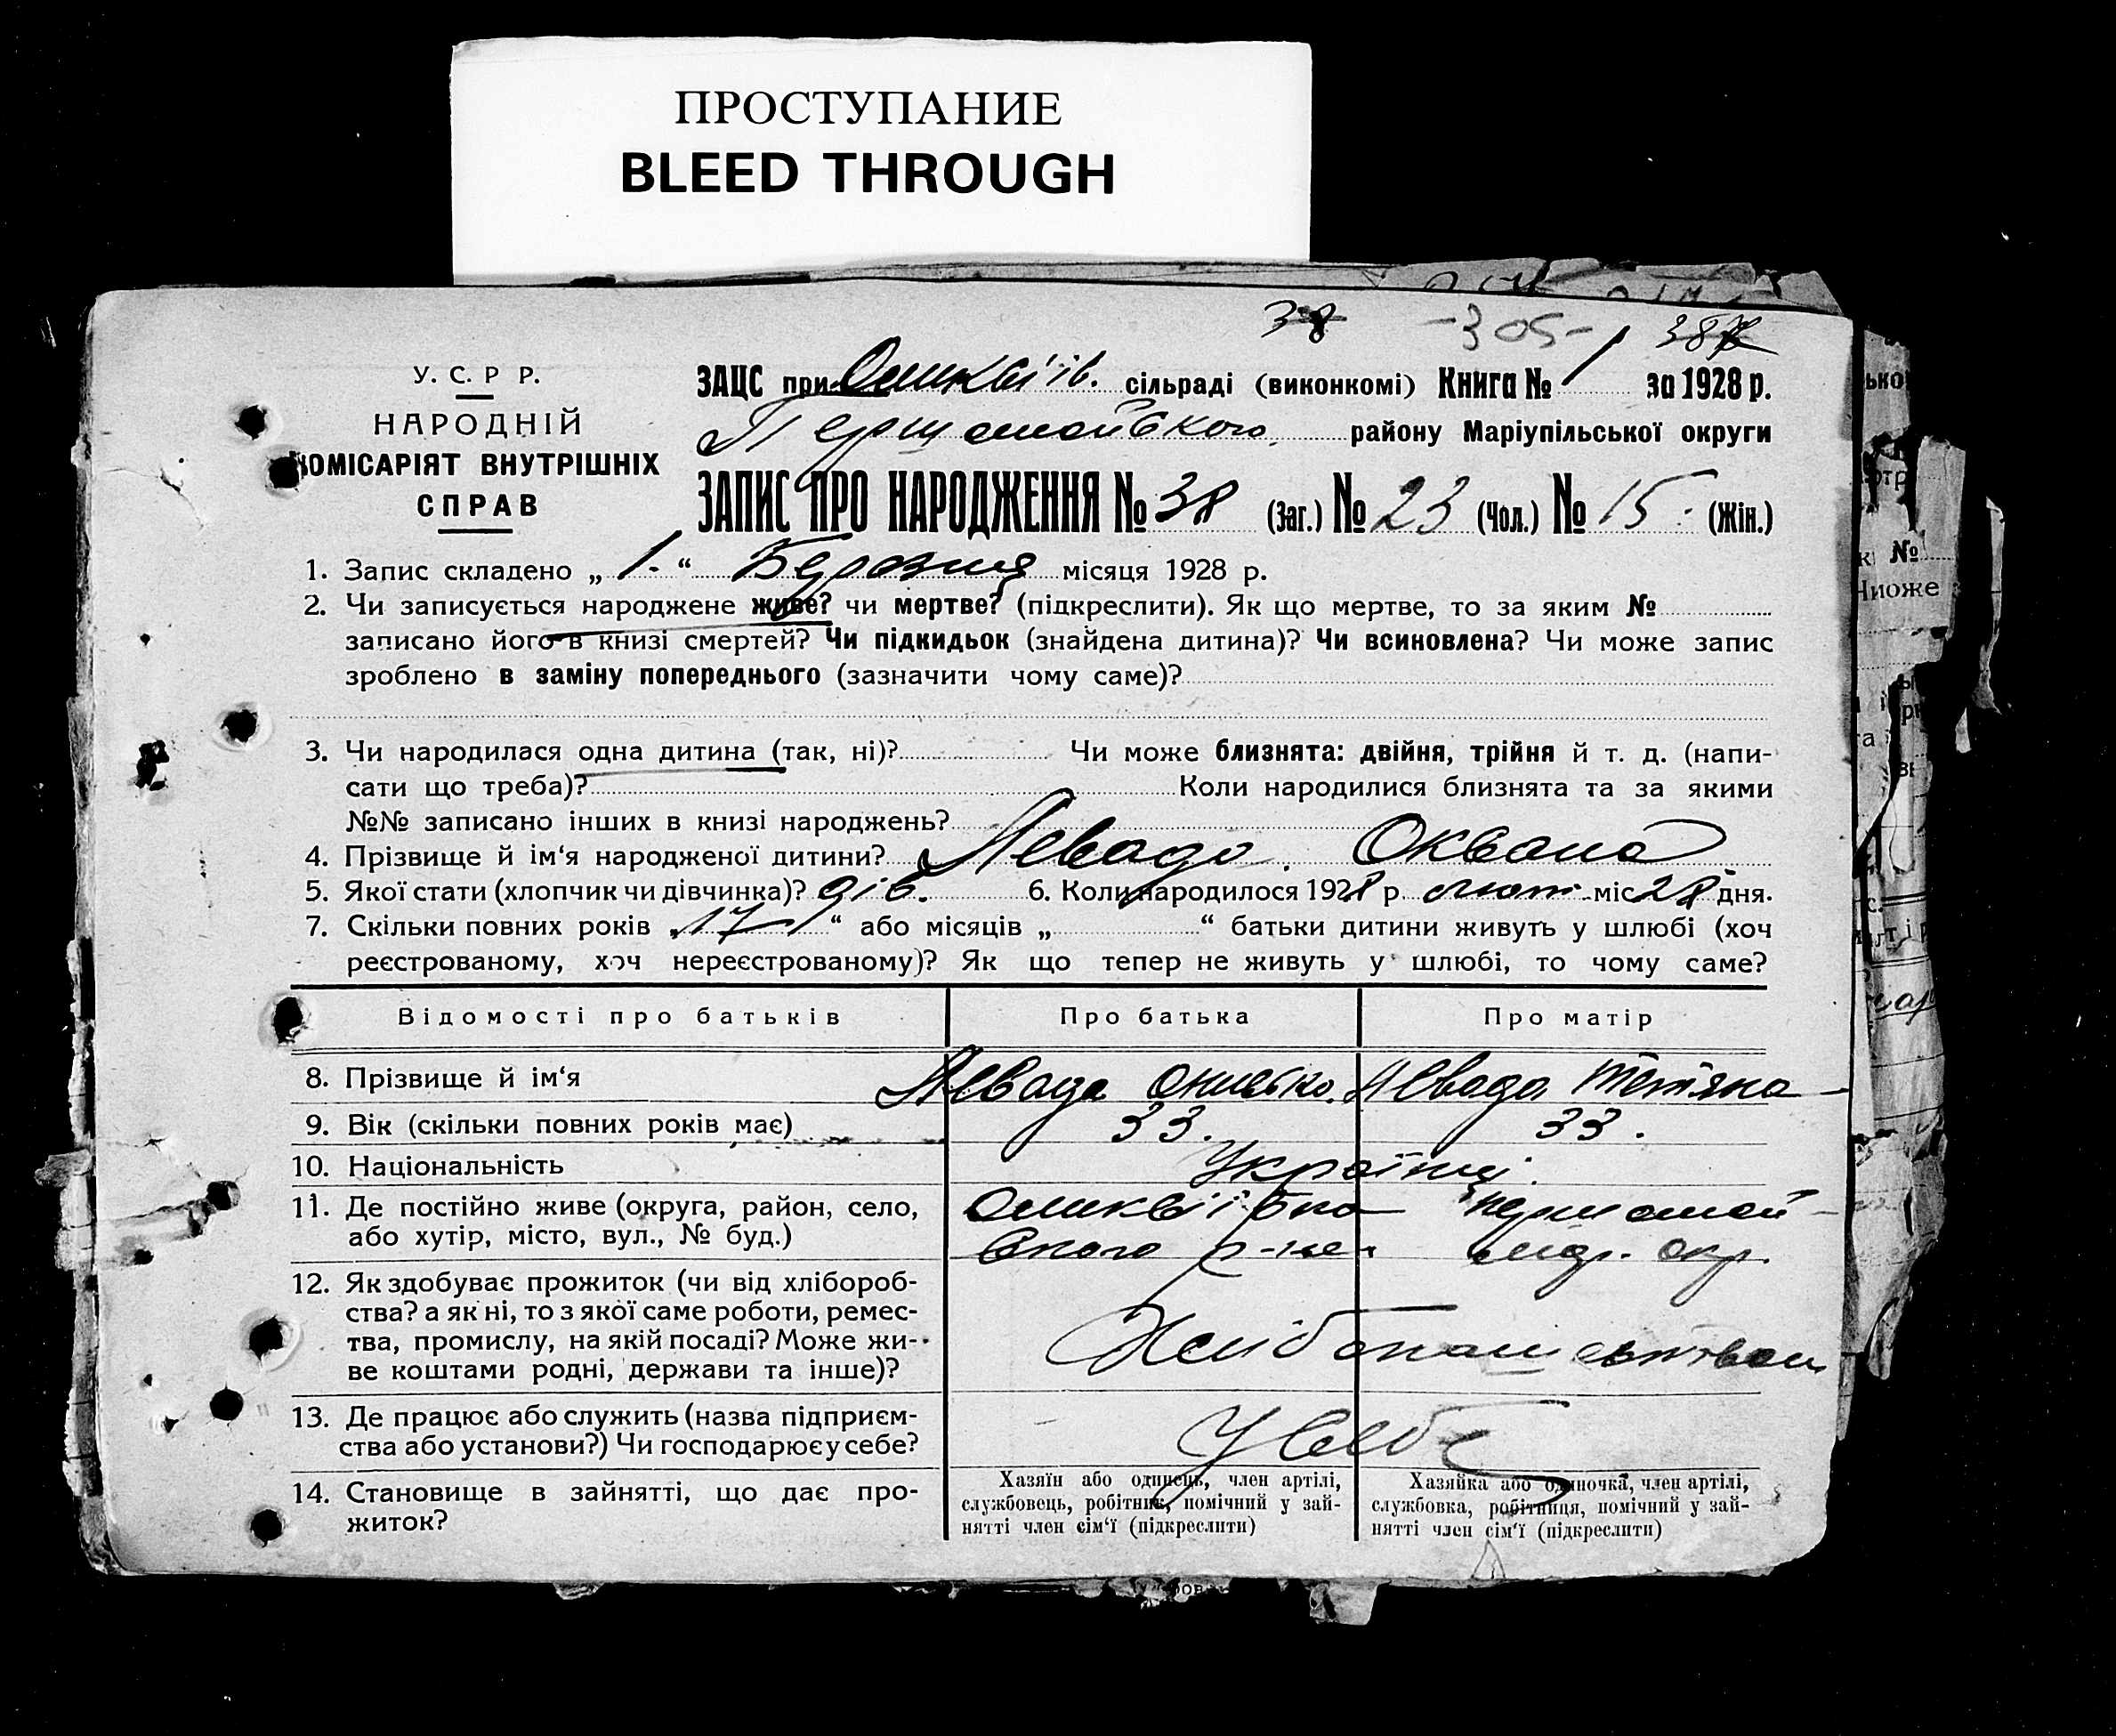 ПРОСТУПАНИЕ
BLEED THROUGH
38 -305- 387
У. С. Р Р.
НАРОДНІЙ
КОМІСАРІЯТ ВНУТРІШНІХ
СПРАВ
ЗАЦС при сільраді (виконкомі) Книга № 1 за 1928 р.
Першомайського району Маріупільської округи
ЗАПИС ПРО НАРОДЖЕННЯ № 38 (Заг.) № 23 (Чол.) № 15 (Жін.)
1. Запис складено „ 1. “ Березня місяця 1928 р.
2. Чи записується народжене живе? чи мертве? (підкреслити). Як що мертве, то за яким №
записано його в книзі смертей? Чи підкидьок (знайдена дитина)? Чи всиновлена? Чи може запис
зроблено в заміну попереднього (зазначити чому саме)?
3. Чи народилася одна дитина (так, ні)? Чи може близнята: двійня, трійня й т. д. (напи-
сати що треба)? Коли народилися близнята та за якими
№№ записано інших в книзі народжень?
4. Прізвище й ім‘я народженої дитини? Левада Оксана
5. Якої стати (хлопчик чи дівчинка)? дів. 6. Коли народилося 1928 р. лют. міс. 28 дня.
7. Скільки повних років „ 17 “ або місяців „ “ батьки дитини живуть у шлюбі (хоч
реєстрованому, хоч нереєстрованому)? Як що тепер не живуть у шлюбі, то чому саме?
Відомості про батьків Про батька Про матір
8. Прізвище й ім‘я Левада Левада Тетяна
9. Вік (скільки повних років має) 33. 33.
10. Національність Українці
11. Де постійно живе (округа, район, село, Першомай-
або хутір, місто, вул., № буд.) ського р-на мар. окр.
12. Як здобуває прожиток (чи від хлібороб-
ства? а як ні, то з якої саме роботи, ремес-
тва, промислу, на якій посаді? Може жи-
ве коштами родні, держави та інше)?
13. Де працює або служить (назва підприєм-
ства або установи?) Чи господарює у себе? У себе
14. Становище в зайнятті, що дає про-
житок?
Хазяїн або одинець, член артілі,
службовець, робітник, помічний у зай-
нятті член сім‘ї (підкреслити)
Хазяйка або одиночка, член артілі,
службовка, робітниця, помічний у зай-
нятті член сім‘ї (підкреслити)